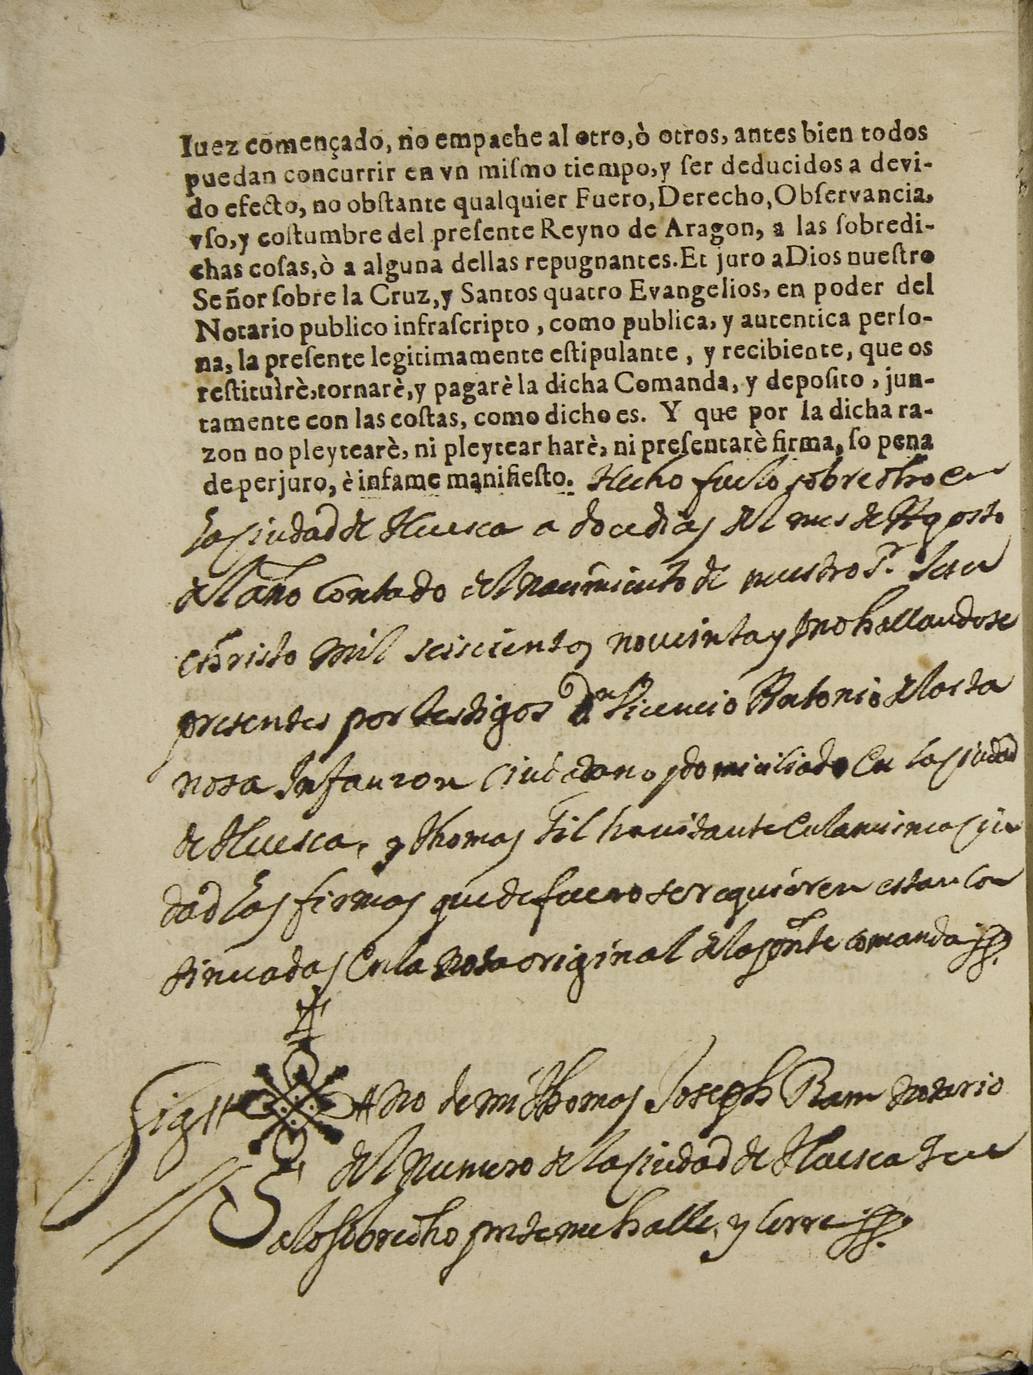 Iuez començado, no empache al otro, ò otros, antes bien todos
puedan concurrir en vn mismo tiempo, y ser deducidos a devi-
do efecto, no obstante qualquier Fuero, Derecho, Observancia,
vso, y costumbre del presente Reyno de Aragon, a las sobredi-
chas cosas, ò a alguna dellas repugnantes. Et juro a Dios nuestro
Señor sobre la Cruz, y Santos quatro Evangelios, en poder del
Notario publico infrascripto, como publica, y autentica perso-
na, la presente legitimamente estipulante, y recibiente, que os
restituirè, tornarè, y pagarè la dicha Comanda, y deposito, jun-
tamente con las costas, como dicho es. Y que por la dicha ra-
zon no pleytearè, ni pleytear harè, ni presentarè firma, so pena
de perjuro, è infame manifiesto. Hecho fue lo sobredho en
la ciudad de Huesca a doce dias del mes de Agosto
del año contado del nacimiento de nuestro Sr. Jesu
christo mil seiscientos novcinta y uno hallandose
presentes por testigos Dn Vicencio Antonio de lasta
nosa Infanzon ciudadano y domiciliado en la ciudad
de Huesca, y Thomas Gil havitante en la misma ciu
dad las firmas que de fuero se requieren estan con
tinuadas en la nota original de la pnte comanda
Sig no de mi Thomas Joseph Ram notario
del numero de la ciudad de Huesca que
a lo sobredho pnte me halle, y cerre